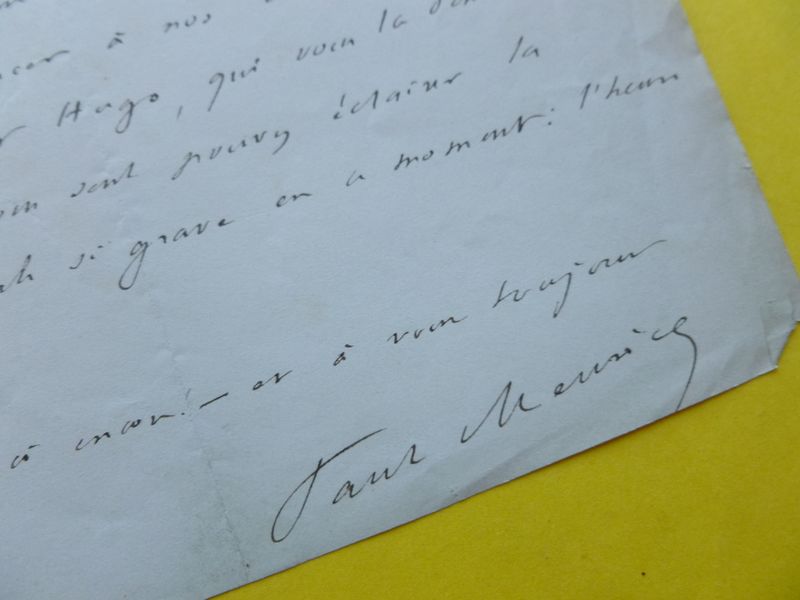 à nos
Hugo, qui vous la
sont pourvu éclairer la
si grave en ce moment: l'heure
à encore! — et à vous toujours
Paul Meurice